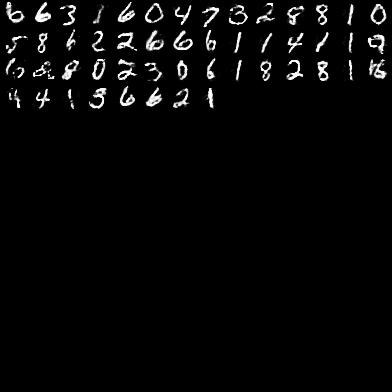 6 6 3 1 6 0 4 7 3 2 8 8 1 0
5 8 6 2 2 6 6 6 1 1 4 1 1 9
6 8 8 0 2 3 0 6 1 8 2 8 1
4 4 1 3 6 6 2 1